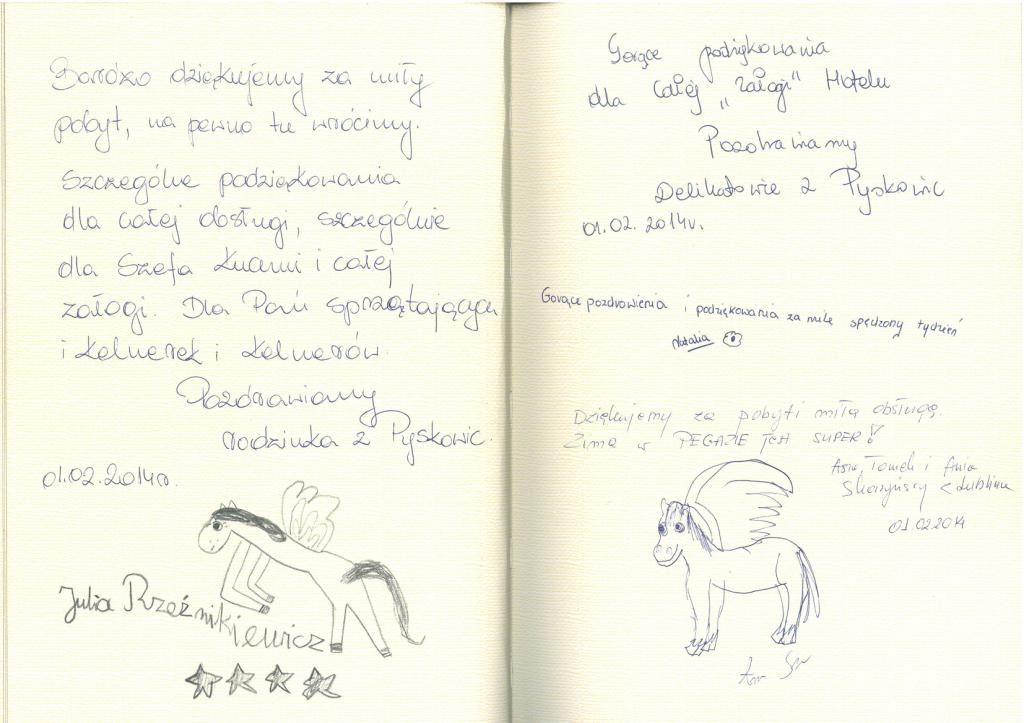 Bardzo dziękujemy za miły
pobyt, na pewno tu wrócimy.
Szczególne podziękowania
dla całej obsługi, szczególnie
dla Szefa Kuchni i całej
załogi. Dla Pań sprzątających
i kelnerek i kelnerów.
Pozdrawiamy
rodzinka z Pyskowic.
01.02.2014r.
Julia Rzeźnikiewicz
Gorące podziękowania
dla całej „załogi" Hotelu
Pozdrawiamy
Delikatowie z Pyskowic
01.02.2014r.
Gorące pozdrowienia i podziękowania za mile spędzony tydzień
Natalia
Dziękujemy za pobyt i miłą obsługę.
Zima w PEGAZIE JEST SUPER!
Tomek i Ania
z Lublina
01.02.2014